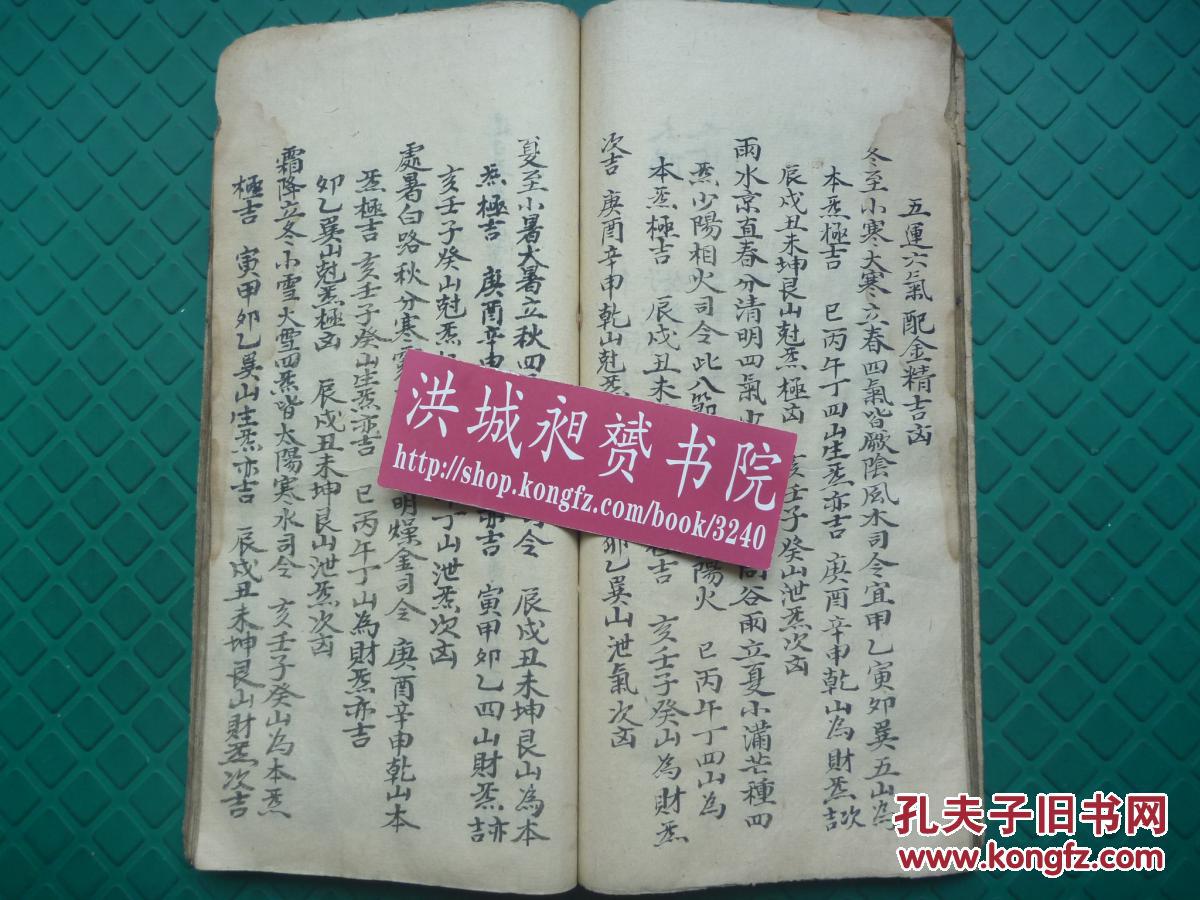 五運六氣配金精吉凶
冬至小寒大寒立春四氣皆厥陰風木司令宜甲乙寅卯巽五山為
本炁極吉 巳丙午丁四山生炁亦吉 庚酉辛申乾山為財炁次吉
辰戌丑未坤艮山尅炁極凶 亥壬子癸山泄炁次凶
雨水京直春分清明四氣 谷雨立夏小滿芒種四
炁少陽相火司令此八節 陽火 巳丙午丁四山為
本炁極吉 辰戌丑未 吉 亥壬子癸山為財炁
次吉 庚酉辛申乾山尅炁 卯乙巽山泄氣次凶
夏至小暑大暑立秋四 令 辰戌丑未坤艮山為本
炁極吉 庚酉辛申 亦吉 寅甲卯乙四山財炁亦吉
亥壬子癸山尅炁 丁山泄炁次凶
處暑白路秋分寒 明燥金司令 庚酉辛申乾山本
炁極吉 亥壬子癸山生炁亦吉 巳丙午丁山為財炁亦吉
卯乙巽山尅炁極凶 辰戌丑未坤艮山泄炁次凶
霜降立冬小雪大雪四炁皆太陽寒水司令 亥壬子癸山為本炁
極吉 寅甲卯乙巽山生炁亦吉 辰戌丑未坤艮山財炁次吉
洪城昶赟书院
http://shop.kongfz.com/book/3240
孔夫子旧书网
www.kongfz.com